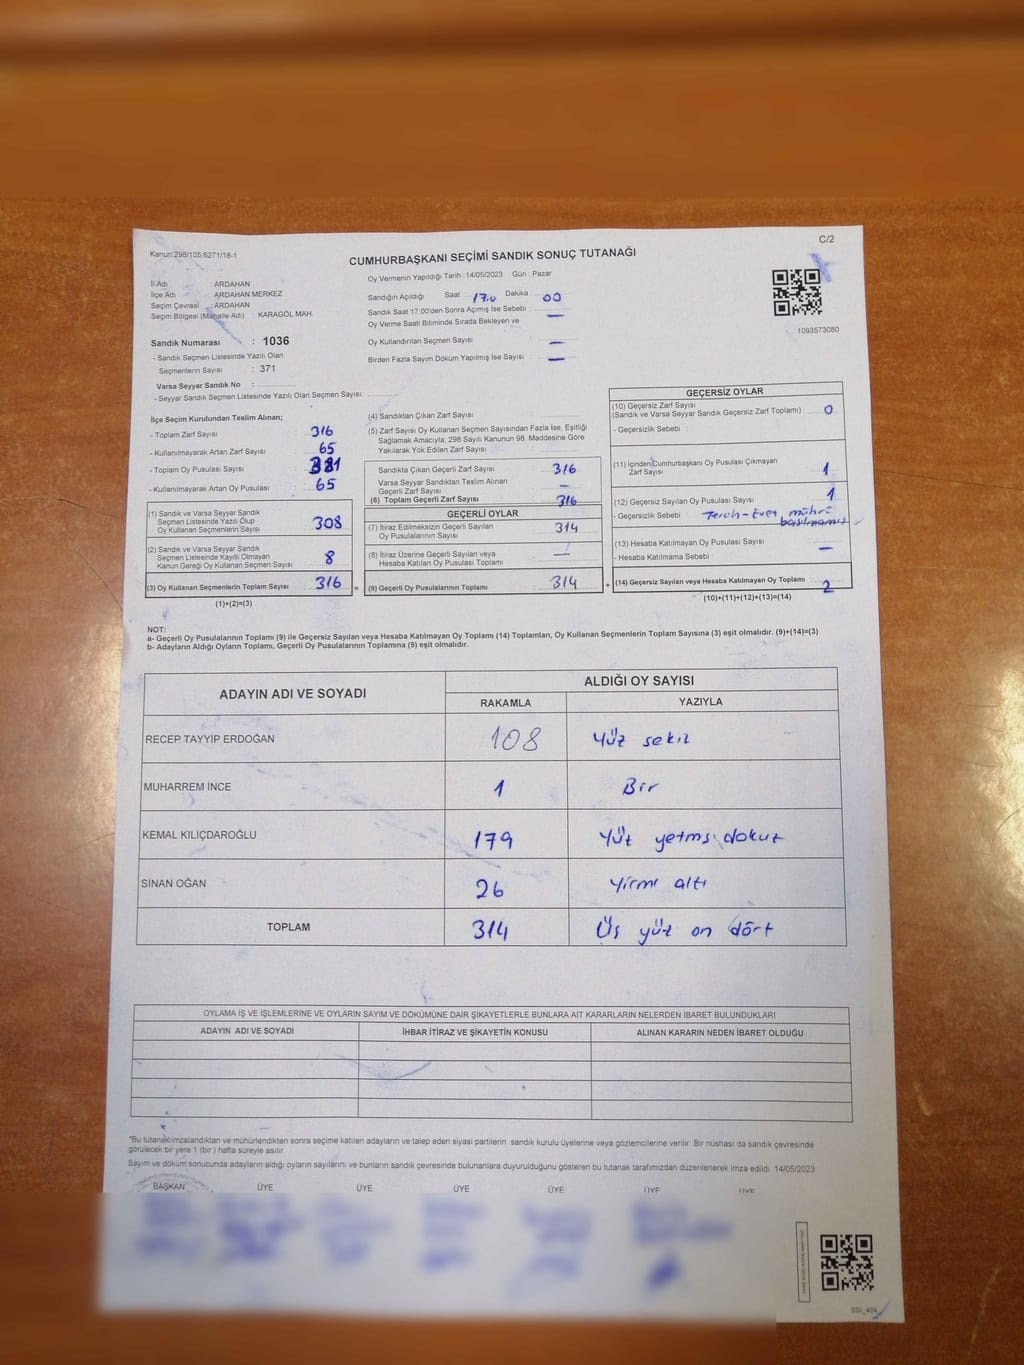 C/2
Kanun:298/105;6271/18-1
CUMHURBAŞKANI SEÇİMİ SANDIK SONUÇ TUTANAĞI
İl Adı : ARDAHAN
İlçe Adı : ARDAHAN MERKEZ
Seçim Çevresi : ARDAHAN
Seçim Bölgesi (Mahalle Adı) : KARAGÖL MAH.
Sandık Numarası : 1036
- Sandık Seçmen Listesinde Yazılı Olan
Seçmenlerin Sayısı : 371
Varsa Seyyar Sandık No :
- Seyyar Sandık Seçmen Listesinde Yazılı Olan Seçmen Sayısı:
Oy Vermenin Yapıldığı Tarih : 14/05/2023 Gün : Pazar
Sandığın Açıldığı Saat : 17.0 Dakika : 00
Sandık Saat 17:00'den Sonra Açımış İse Sebebi : —
Oy Verme Saati Bitiminde Sırada Bekleyen ve
Oy Kullandırılan Seçmen Sayısı : —
Birden Fazla Sayım Döküm Yapılmış İse Sayısı : —
1093573080
İlçe Seçim Kurulundan Teslim Alınan;
- Toplam Zarf Sayısı : 316
- Kullanılmayarak Artan Zarf Sayısı : 65
- Toplam Oy Pusulası Sayısı : 381
- Kullanılmayarak Artan Oy Pusulası : 65
(1) Sandık ve Varsa Seyyar Sandık
Seçmen Listesinde Yazılı Olup
Oy Kullanan Seçmenlerin Sayısı : 308
(2) Sandık ve Varsa Seyyar Sandık
Seçmen Listesinde Kayıtlı Olmayan
Kanun Gereği Oy Kullanan Seçmen Sayısı : 8
(3) Oy Kullanan Seçmenlerin Toplam Sayısı : 316 =
(1)+(2)=(3)
(4) Sandıktan Çıkan Zarf Sayısı :
(5) Zarf Sayısı Oy Kullanan Seçmen Sayısından Fazla İse, Eşitliği
Sağlamak Amacıyla, 298 Sayılı Kanunun 98. Maddesine Göre
Yakılarak Yok Edilen Zarf Sayısı :
Sandıkta Çıkan Geçerli Zarf Sayısı : 316
Varsa Seyyar Sandıktan Teslim Alınan
Geçerli Zarf Sayısı : —
(6) Toplam Geçerli Zarf Sayısı : 316
GEÇERLİ OYLAR
(7) İtiraz Edilmeksizin Geçerli Sayılan
Oy Pusulalarının Sayısı : 314
(8) İtiraz Üzerine Geçerli Sayılan veya
Hesaba Katılan Oy Pusulası Toplamı : —
(9) Geçerli Oy Pusulalarının Toplamı : 314 +
GEÇERSİZ OYLAR
(10) Geçersiz Zarf Sayısı
(Sandık ve Varsa Seyyar Sandık Geçersiz Zarf Toplamı) : 0
- Geçersizlik Sebebi :
(11) İçinden Cumhurbaşkanı Oy Pusulası Çıkmayan
Zarf Sayısı : 1
(12) Geçersiz Sayılan Oy Pusulası Sayısı : 1
- Geçersizlik Sebebi : Tercih-Evet mührü
basılmamış
(13) Hesaba Katılmayan Oy Pusulası Sayısı : —
- Hesaba Katılmama Sebebi :
(14) Geçersiz Sayılan veya Hesaba Katılmayan Oy Toplamı : 2
(10)+(11)+(12)+(13)=(14)
NOT:
a- Geçerli Oy Pusulalarının Toplamı (9) ile Geçersiz Sayılan veya Hesaba Katılmayan Oy Toplamı (14) Toplamları, Oy Kullanan Seçmenlerin Toplam Sayısına (3) eşit olmalıdır. (9)+(14)=(3)
b- Adayların Aldığı Oyların Toplamı, Geçerli Oy Pusulalarının Toplamına (9) eşit olmalıdır.
ADAYIN ADI VE SOYADI
ALDIĞI OY SAYISI
RAKAMLA YAZIYLA
RECEP TAYYİP ERDOĞAN 108 Yüz sekiz
MUHARREM İNCE 1 Bir
KEMAL KILIÇDAROĞLU 179 Yüz yetmiş dokuz
SİNAN OĞAN 26 Yirmi altı
TOPLAM 314 Üç yüz on dört
OYLAMA İŞ VE İŞLEMLERİNE VE OYLARIN SAYIM VE DÖKÜMÜNE DAİR ŞİKAYETLERLE BUNLARA AİT KARARLARIN NELERDEN İBARET BULUNDUKLARI
ADAYIN ADI VE SOYADI İHBAR İTİRAZ VE ŞİKAYETİN KONUSU ALINAN KARARIN NEDEN İBARET OLDUĞU
*Bu tutanak imzalandıktan ve mühürlendikten sonra seçime katılan adayların ve talep eden siyasi partilerin sandık kurulu üyelerine veya gözlemcilerine verilir. Bir nüshası da sandık çevresinde
görülecek bir yere 1 (bir) hafta süreyle asılır.
Sayım ve döküm sonucunda adayların aldığı oyların sayılarını ve bunların sandık çevresinde bulunanlara duyurulduğunu gösteren bu tutanak tarafımızdan düzenlenerek imza edildi. 14/05/2023
BAŞKAN ÜYE ÜYE ÜYE ÜYE ÜYE ÜYE